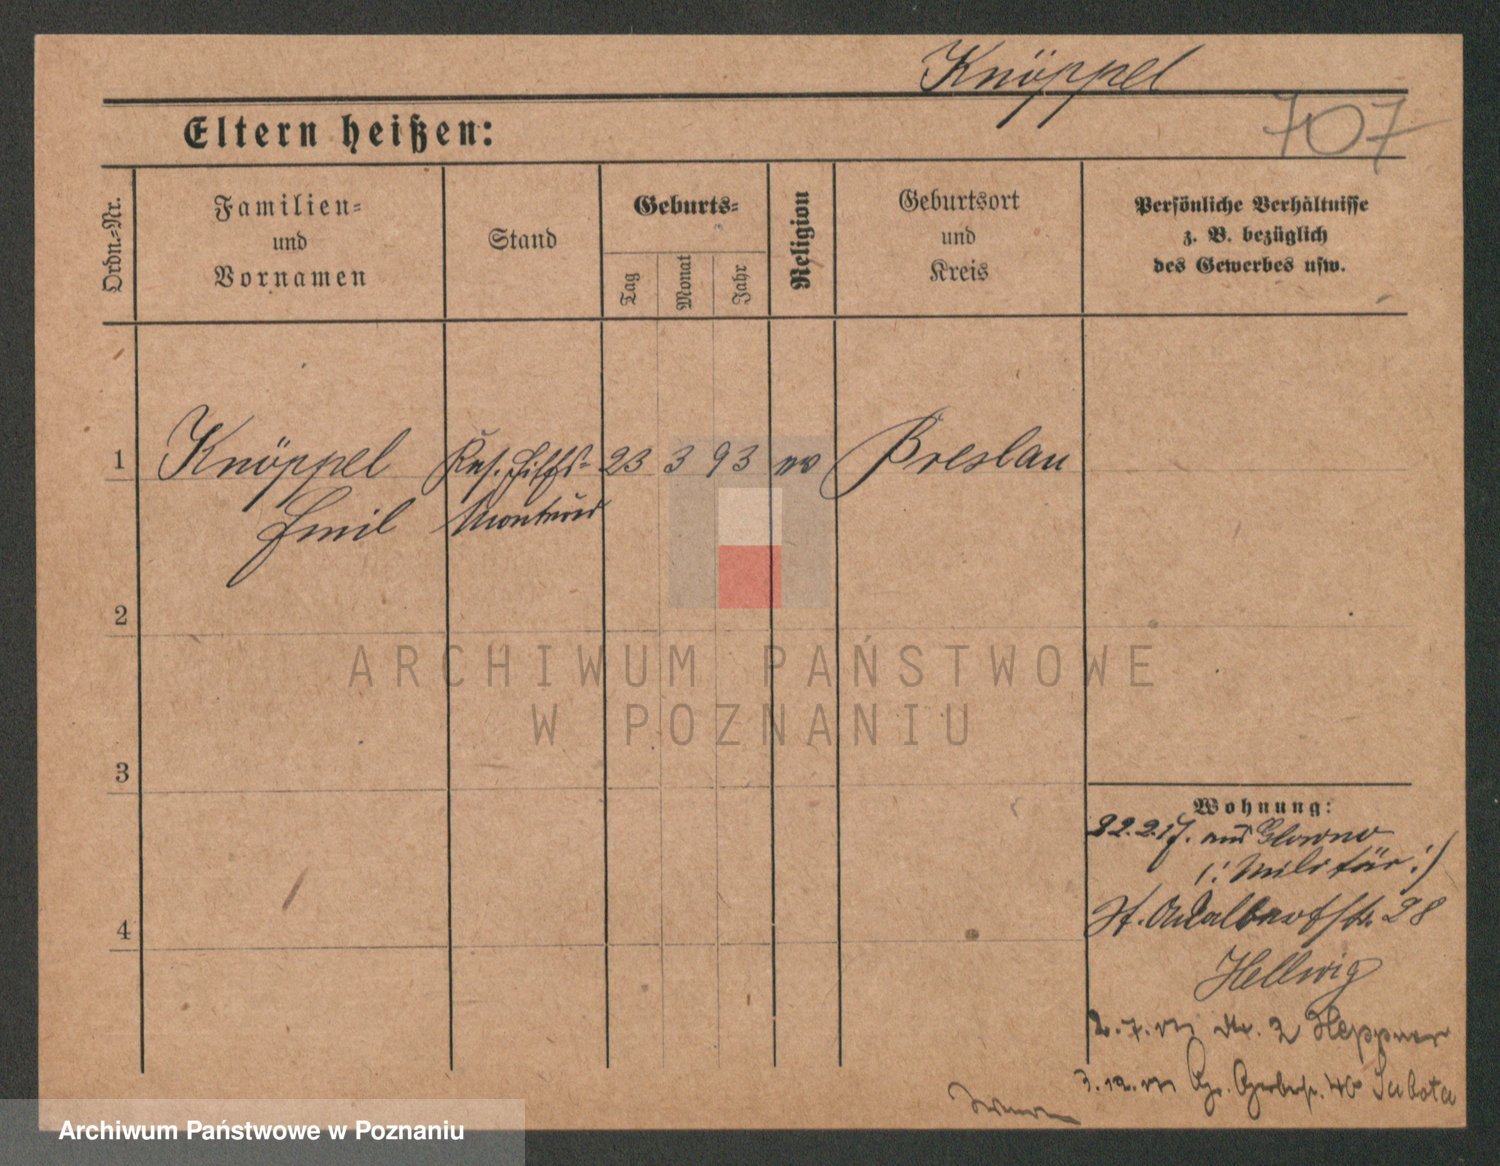 Knöppel
707
Eltern heißen:
Ordn.-Nr.
Familien-
und
Vornamen
Stand
Geburts-
Tag
Monat
Jahr
Religion
Geburtsort
und
Kreis
Persönliche Verhältnisse
z. B. bezüglich
des Gewerbes usw.
1
Knöppel
Emil
Hilfs-
Monteur
23 3 93
ev
Breslau
2
3
4
Wohnung:
22.2.17. aus Glowno
(: Militär :)
St. Adalbertstr. 28
Hellwig
2.7. Nr. 2 Heppner
3.12. Gr. Gerberstr. 46 Sabota
ARCHIWUM PAŃSTWOWE
W POZNANIU
Archiwum Państwowe w Poznaniu